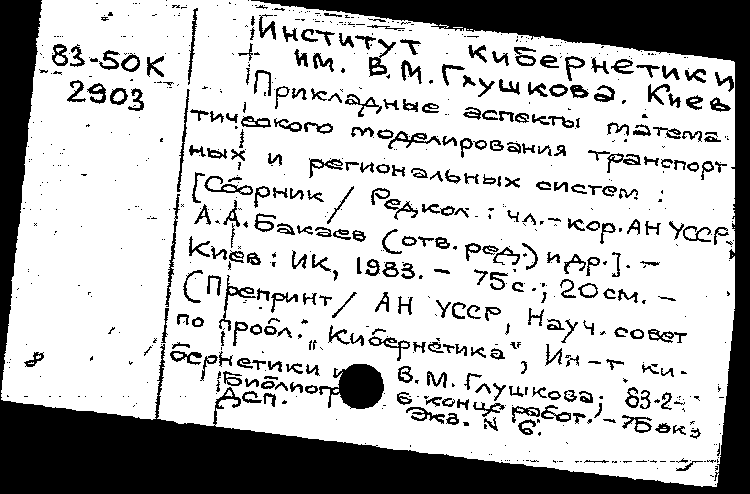 83-50К
2903
Институт кибернетики
им. В.М. Глушкова. Киев
Прикладные аспекты матема-
тического моделирования транспорт-
ных и региональных систем :
[Сборник / Редкол. : чл.-кор. АН УССР
А.А. Бакаев (отв. ред.) и др.]. -
Киев : ИК, 1983. - 75 с. ; 20 см. -
(Препринт / АН УССР, Науч. совет
по пробл. "Кибернетика", Ин-т ки-
бернетики В.М. Глушкова; 83-2
Библиогр. в конце работ. - 75 экз
Дсп. Экз. N 6.
8